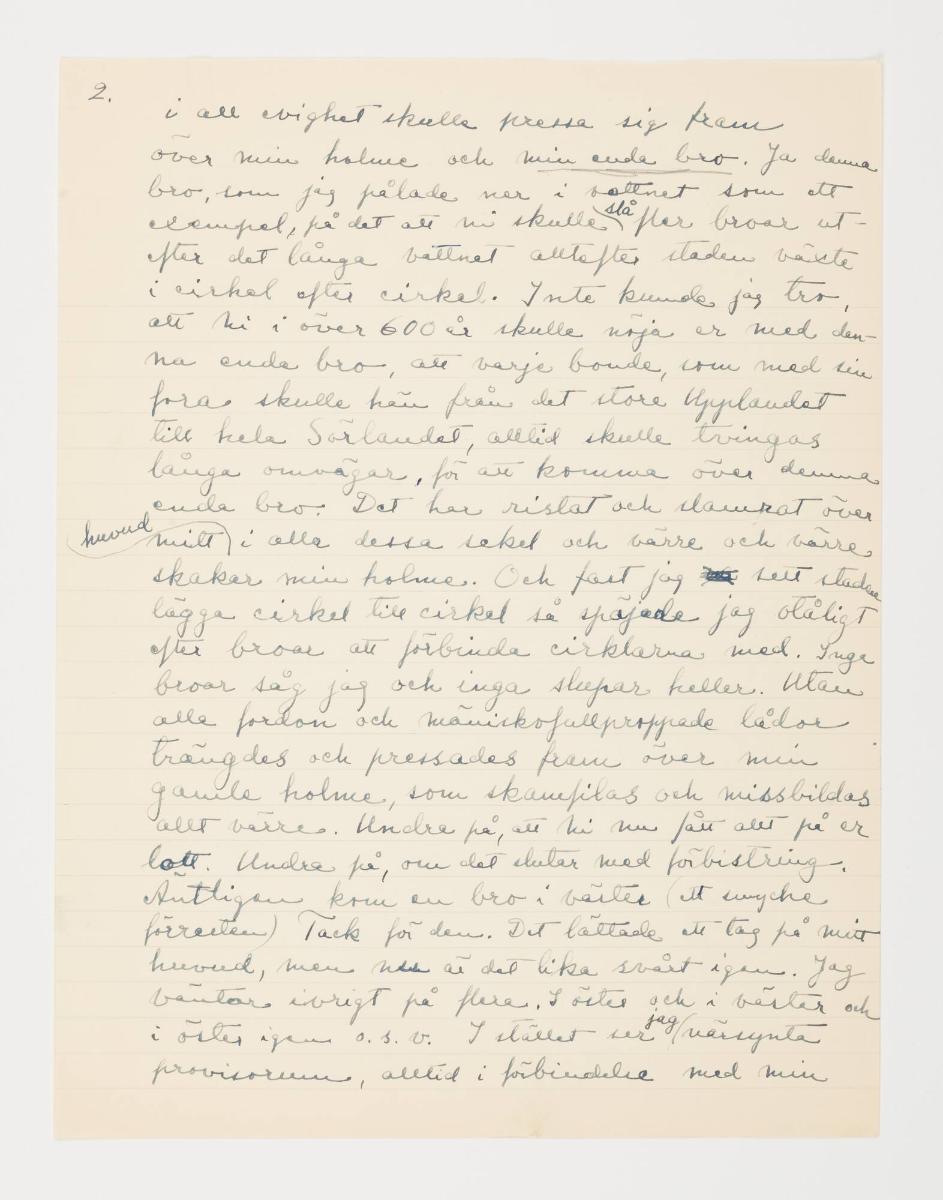 2.
i all evighet skulle pressa sig fram
över min holme och min enda bro. Ja denna
bro, som jag pålade ner i vattnet som ett
exempel, på det att ni skulle slå fler broar ut-
efter det långa vattnet alltefter staden växte
i cirkel efter cirkel. Inte kunde jag tro,
att Ni i över 600 år skulle nöja er med den-
na enda bro, att varje bonde, som med sin
fora skulle hän från det store Upplandet
till hela Sörlandet, alltid skulle tvingas
långa omvägar, för att komma över denna
enda bro. Det har ristat och slamrat över
mitt huvud i alla dessa sekel och värre och värre
skakar min holme. Och fast jag sett staden
lägga cirkel till cirkel så spejade jag otåligt
efter broar att förbinda cirklarna med. Inga
broar såg jag och inga slupar heller. Utan
alla fordon och mäniskofullproppade lådor
trängdes och pressades fram över min
gamle holme, som skamfilas och missbildas
allt värre. Undra på, att Ni nu fått allt på er
lott. Undra på, om det slutar med förbistring.
Äntligen kom en bro i väster (ett smycke
förresten) Tack för den. Det lättade ett tag på mitt
huvud, men nu är det lika svårt igen. Jag
väntar ivrigt på flera. I öster och i väster och
i öster igen o.s.v. I stället ser jag närsynta
provisorium, alltid i förbindelse med min